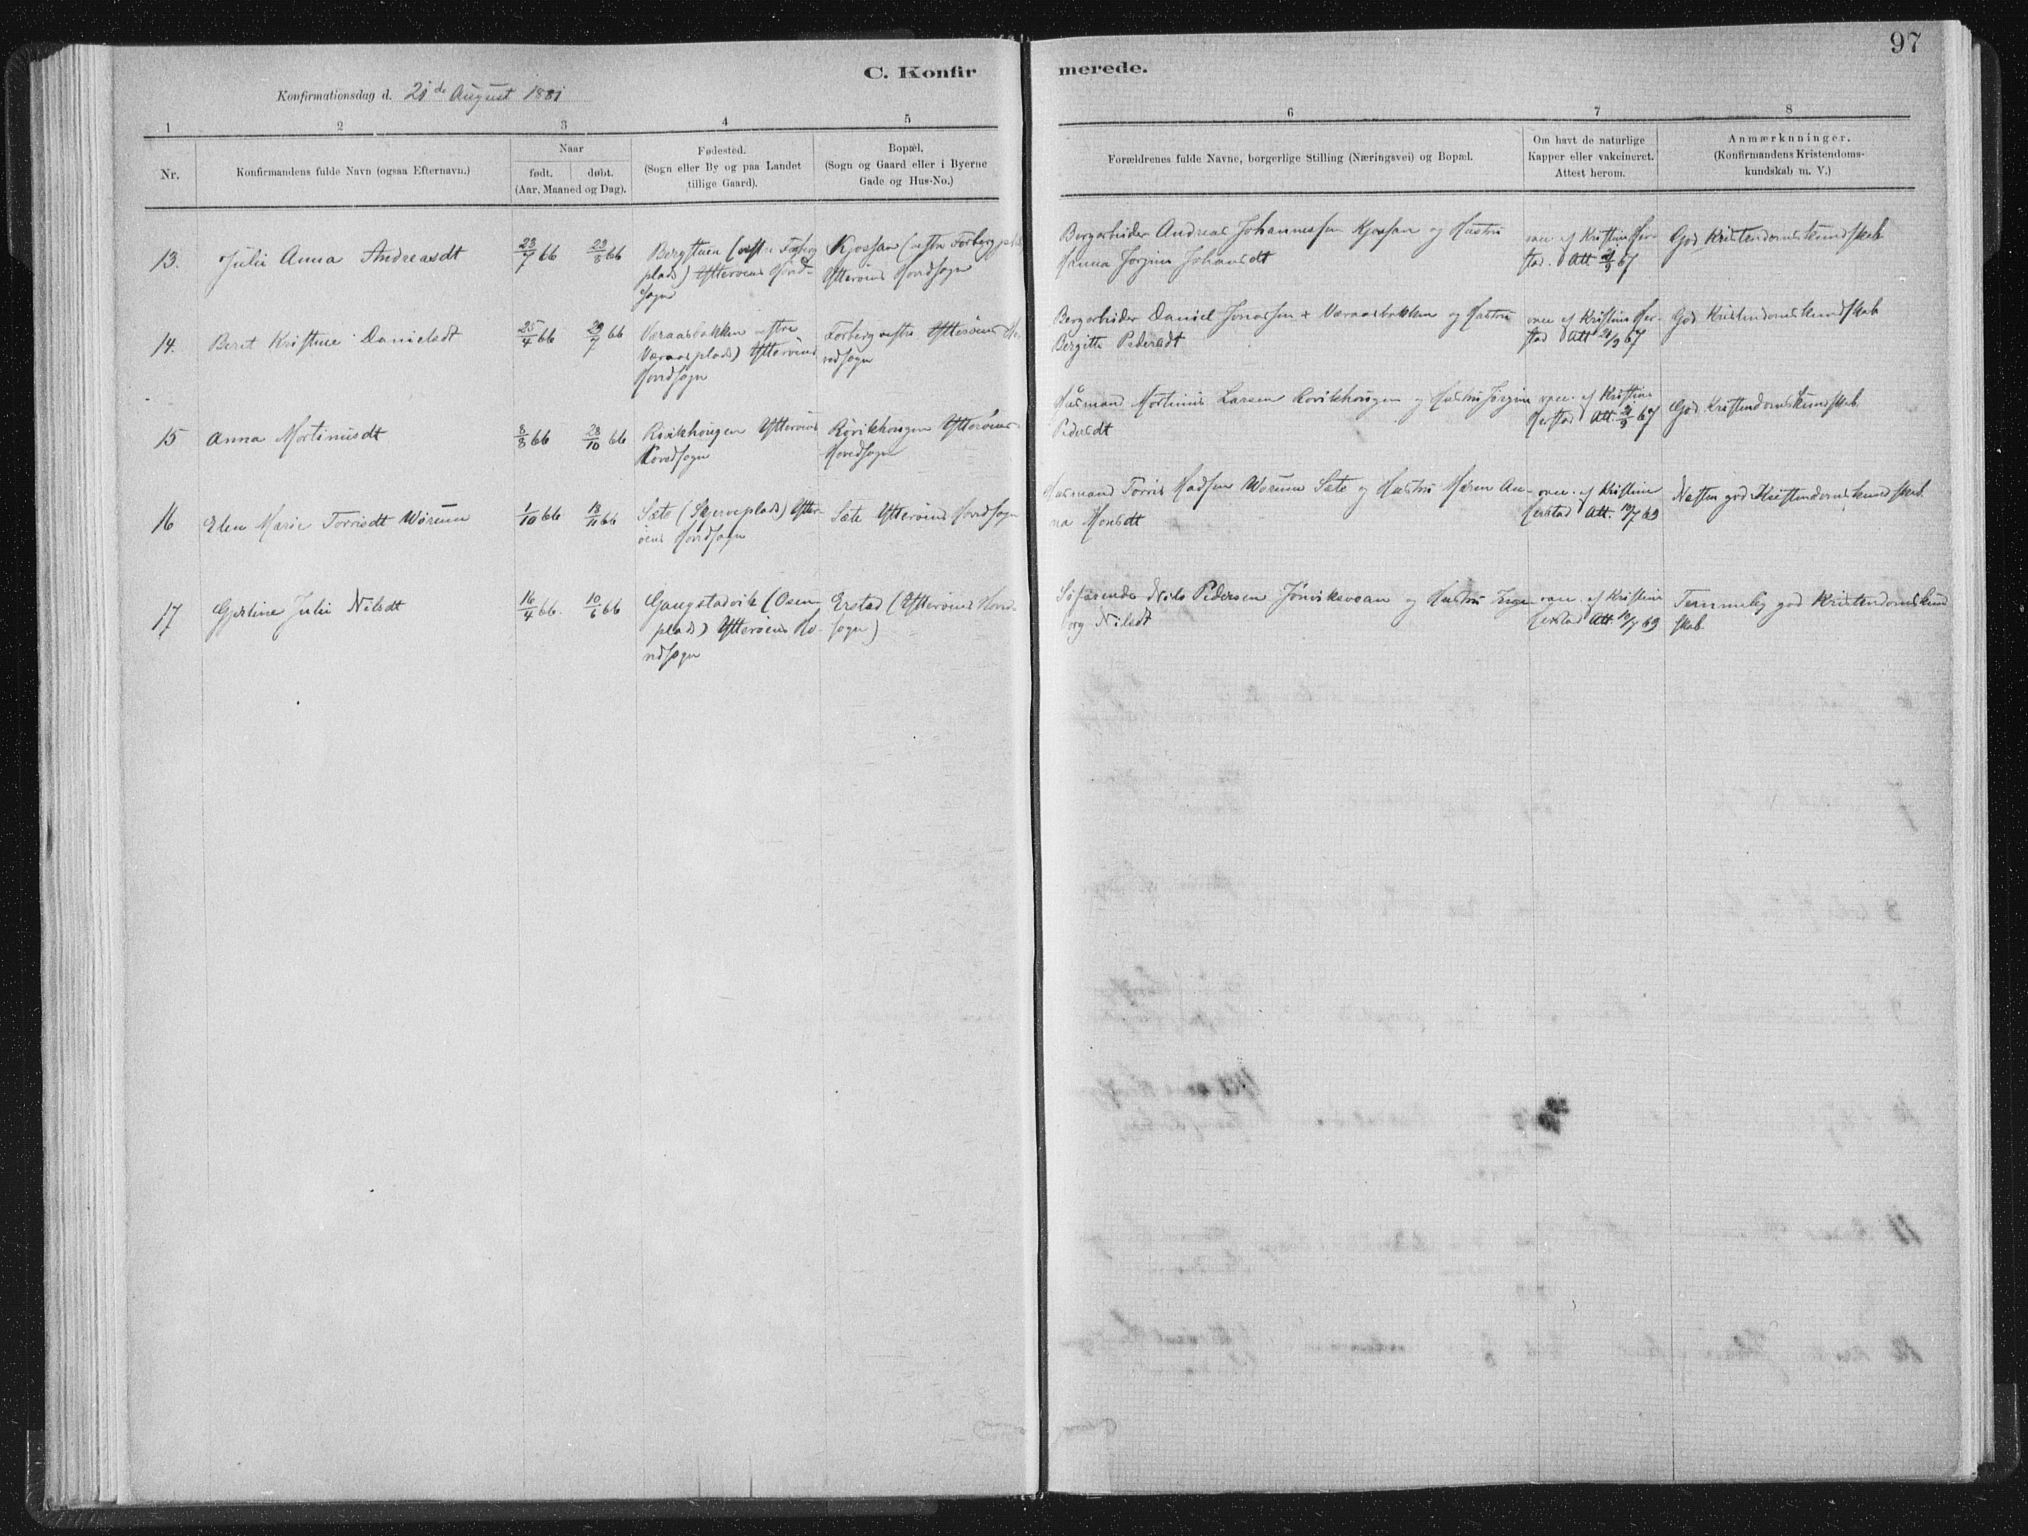 97
C. Konfirmerede.
Konfirmationsdag d. 21de August 1881
1 2 3 4 5 6 7 8
Nr.
Konfirmandens fulde Navn (ogsaa Efternavn.)
Naar
født. døbt.
(Aar, Maaned og Dag).
Fødested.
(Sogn eller By og paa Landet
tillige Gaard).
Bopæl.
(Sogn og Gaard eller i Byerne
Gade og Hus-No.)
Forældrenes fulde Navne, borgerlige Stilling (Næringsvei) og Bopæl.
Om havt de naturlige
Kapper eller vakcineret.
Attest herom.
Anmærkninger.
(Konfirmandens Kristendoms-
kundskab m. V.)
13. Julie Anna Andreasdt
23/7 66
29/8 66
Bergstuen (vestre Forberg
plads) Ytterøens Hoved-
sogn
Kjøssan (vestre Forberg plads
Ytterøens Hovedsogn
Bergarbeider Andreas Johannessen Kjøssan og Hustru
Hanna Jørgine Johansdt
vacc. af Kristine Her-
stad. Att 21/9 67
God Kristendomskundskab
14. Beret Kristine Danielsdt
25/4 66
29/7 66
Væraasbakken vestre
Væraasplads) Ytterøens
Hovedsogn
Forberg vestre Ytterøens Ho-
vedsogn
Bergarbeider Daniel Jonassen Væraasbakken og Hustru
Bergitte Pedersdt
vacc. af Kristine Her-
stad Att 21/9 67
God Kristendomskundskab
15 Anna Mortinusdt
8/8 66
28/10 66
Rovikhougen Ytterøens
Hovedsogn
Rovikhougen Ytterøens
Hovedsogn
Husmand Mortinus Larsen Rovikhougen og Hustru Jørgine
Pedersdt
vacc. af Kristine
Herstad Att. 21/9 67
God Kristendomskundskab
16 Elen Marie Torrisdt Wørum
1/10 66
18/11 66
Sæte (Skjerveplads) Ytter-
øens Hovedsogn
Sæte Ytterøens Hovedsogn
Husmand Torris Madsen Wørum Sæte og Hustru Maren An-
na Monsdt
vacc. af Kristine
Herstad Att. 10/7 69
Næsten god Kristendomskundskab
17 Gjertine Julie Nilsdt
16/4 66.
10/6 66
Gangstadvik (Osen
plads) Ytterøens Ho-
vedsogn
Erstad (Ytterøens Hoved-
sogn)
Søfarende Nils Pedersen Jønviksvean og Hustru Inge-
org Nilsdt
vacc. af Kristine
Herstad Att. 10/7 69
Temmelig god Kristendomskund
skab.